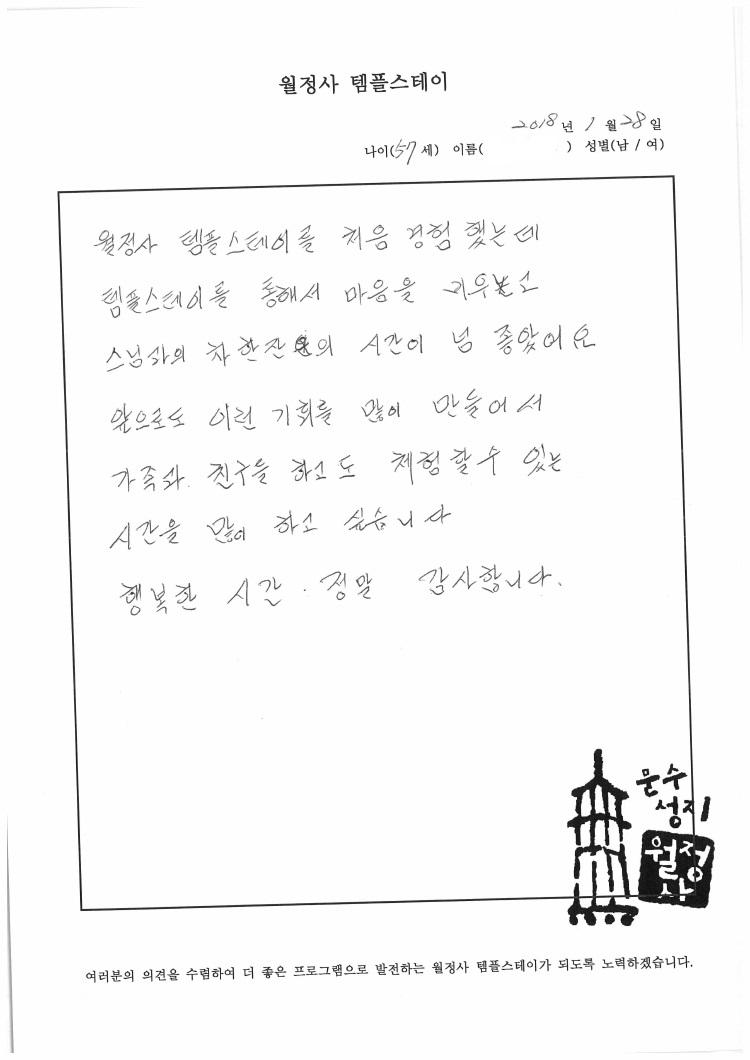 월정사 템플스테이
2018년 1월 28일
나이(57세) 이름( ) 성별(남 / 여)
월정사 템플스테이를 처음 경험 했는데
템플스테이를 통해서 마음을
스님과의 차 한잔의 시간이 넘 좋았어요
앞으로도 이런 기회를 많이 만들어서
가족과. 친구를 하고도 체험할수 있는
시간을 많이 하고 싶습니다
행복한 시간. 정말 감사합니다.
문수
성지
월정
사
여러분의 의견을 수렴하여 더 좋은 프로그램으로 발전하는 월정사 템플스테이가 되도록 노력하겠습니다.